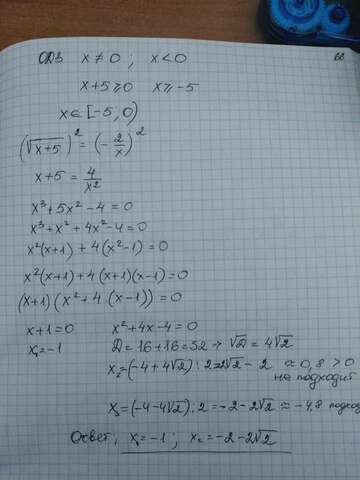 ОДЗ x ≠ 0 ; x < 0
x+5 ≥ 0 x ≥ -5
x ∈ [-5; 0)
(√(x+5))² = (-2/x)²
x+5 = 4/x²
x³+5x²-4=0
x³+x²+4x²-4=0
x²(x+1) + 4(x²-1)=0
x²(x+1)+4(x+1)(x-1)=0
(x+1)(x²+4·(x-1))=0
x+1=0 x²+4x-4=0
x₁=-1 D=16+16=32 → √D = 4√2
x₂=(-4+4√2):2=2√2-2 ≈0,8>0
не подходит
x₃=(-4-4√2):2=-2-2√2≈-4,8 подход
Ответ: x₁=-1; x₂=-2-2√2